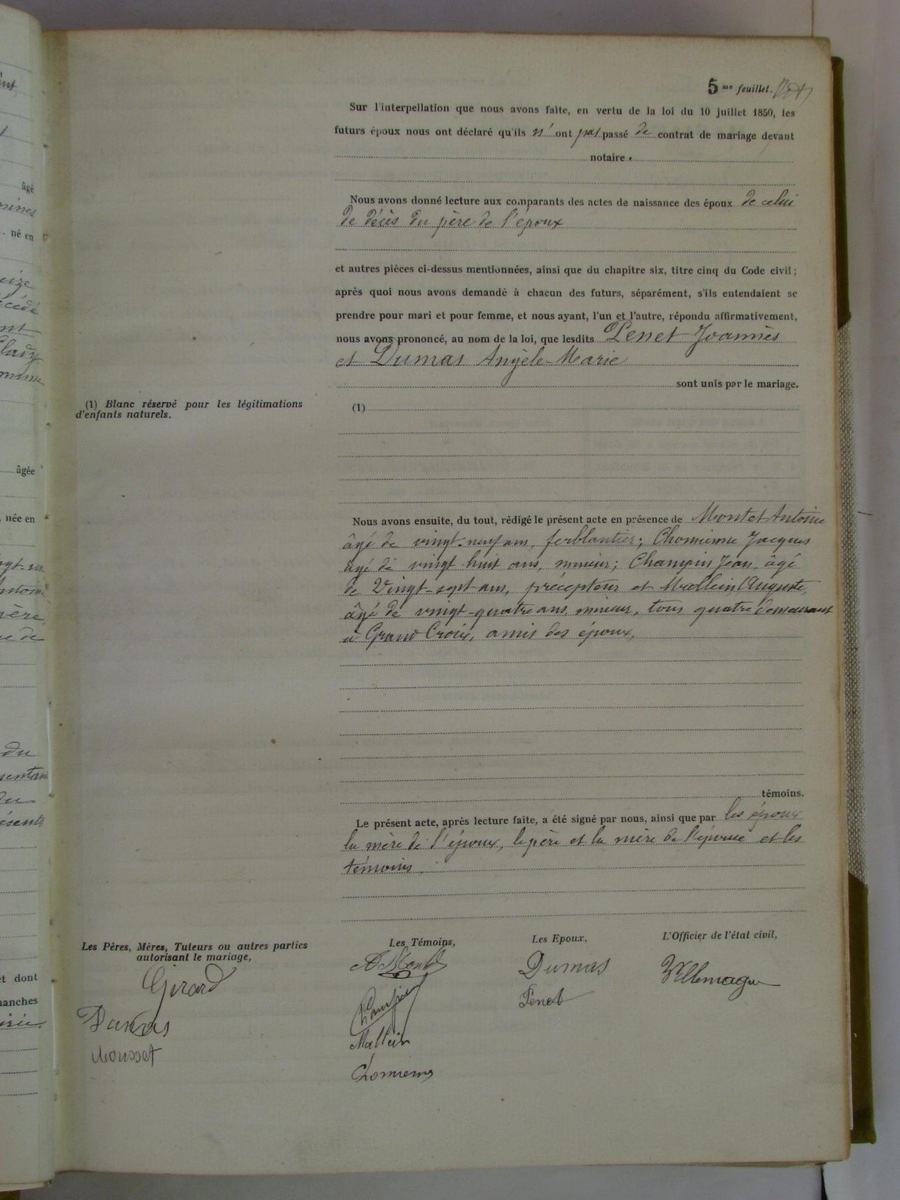 5me feuillet.
Sur l'interpellation que nous avons faite, en vertu de la loi du 10 juillet 1850, les
futurs époux nous ont déclaré qu'ils n'ont pas passé de contrat de mariage devant
notaire.
Nous avons donné lecture aux comparants des actes de naissance des époux de celui
de décès du père de l'époux
et autres pièces ci-dessus mentionnées, ainsi que du chapitre six, titre cinq du Code civil;
après quoi nous avons demandé à chacun des futurs, séparément, s'ils entendaient se
prendre pour mari et pour femme, et nous ayant, l'un et l'autre, répondu affirmativement,
nous avons prononcé, au nom de la loi, que lesdits Penet Joannès
et Dumas Angèle-Marie
sont unis par le mariage.
(1) Blanc réservé pour les légitimations
d'enfants naturels.
(1)
Nous avons ensuite, du tout, rédigé le présent acte en présence de Montet Antoine
âgé de vingt-neuf ans, ferblantier; Chomienne Jacques
âgé de vingt huit ans, mineur; Champin Jean, âgé
de Vingt-sept ans, précepteur et Mallein Auguste,
âgé de vingt-quatre ans, mineur, tous quatre demeurant
à Grand Croix, amis des époux,
témoins.
Le présent acte, après lecture faite, a été signé par nous, ainsi que par les époux
la mère de l'époux, le père et la mère de l'épouse et les
témoins.
Les Pères, Mères, Tuteurs ou autres parties
autorisant le mariage,
Les Témoins,
Les Epoux,
L'Officier de l'état civil,
Girard
Dumas
Mousset
Mallein
Dumas
Penet
âgé
né en
âgée
, née en
et dont